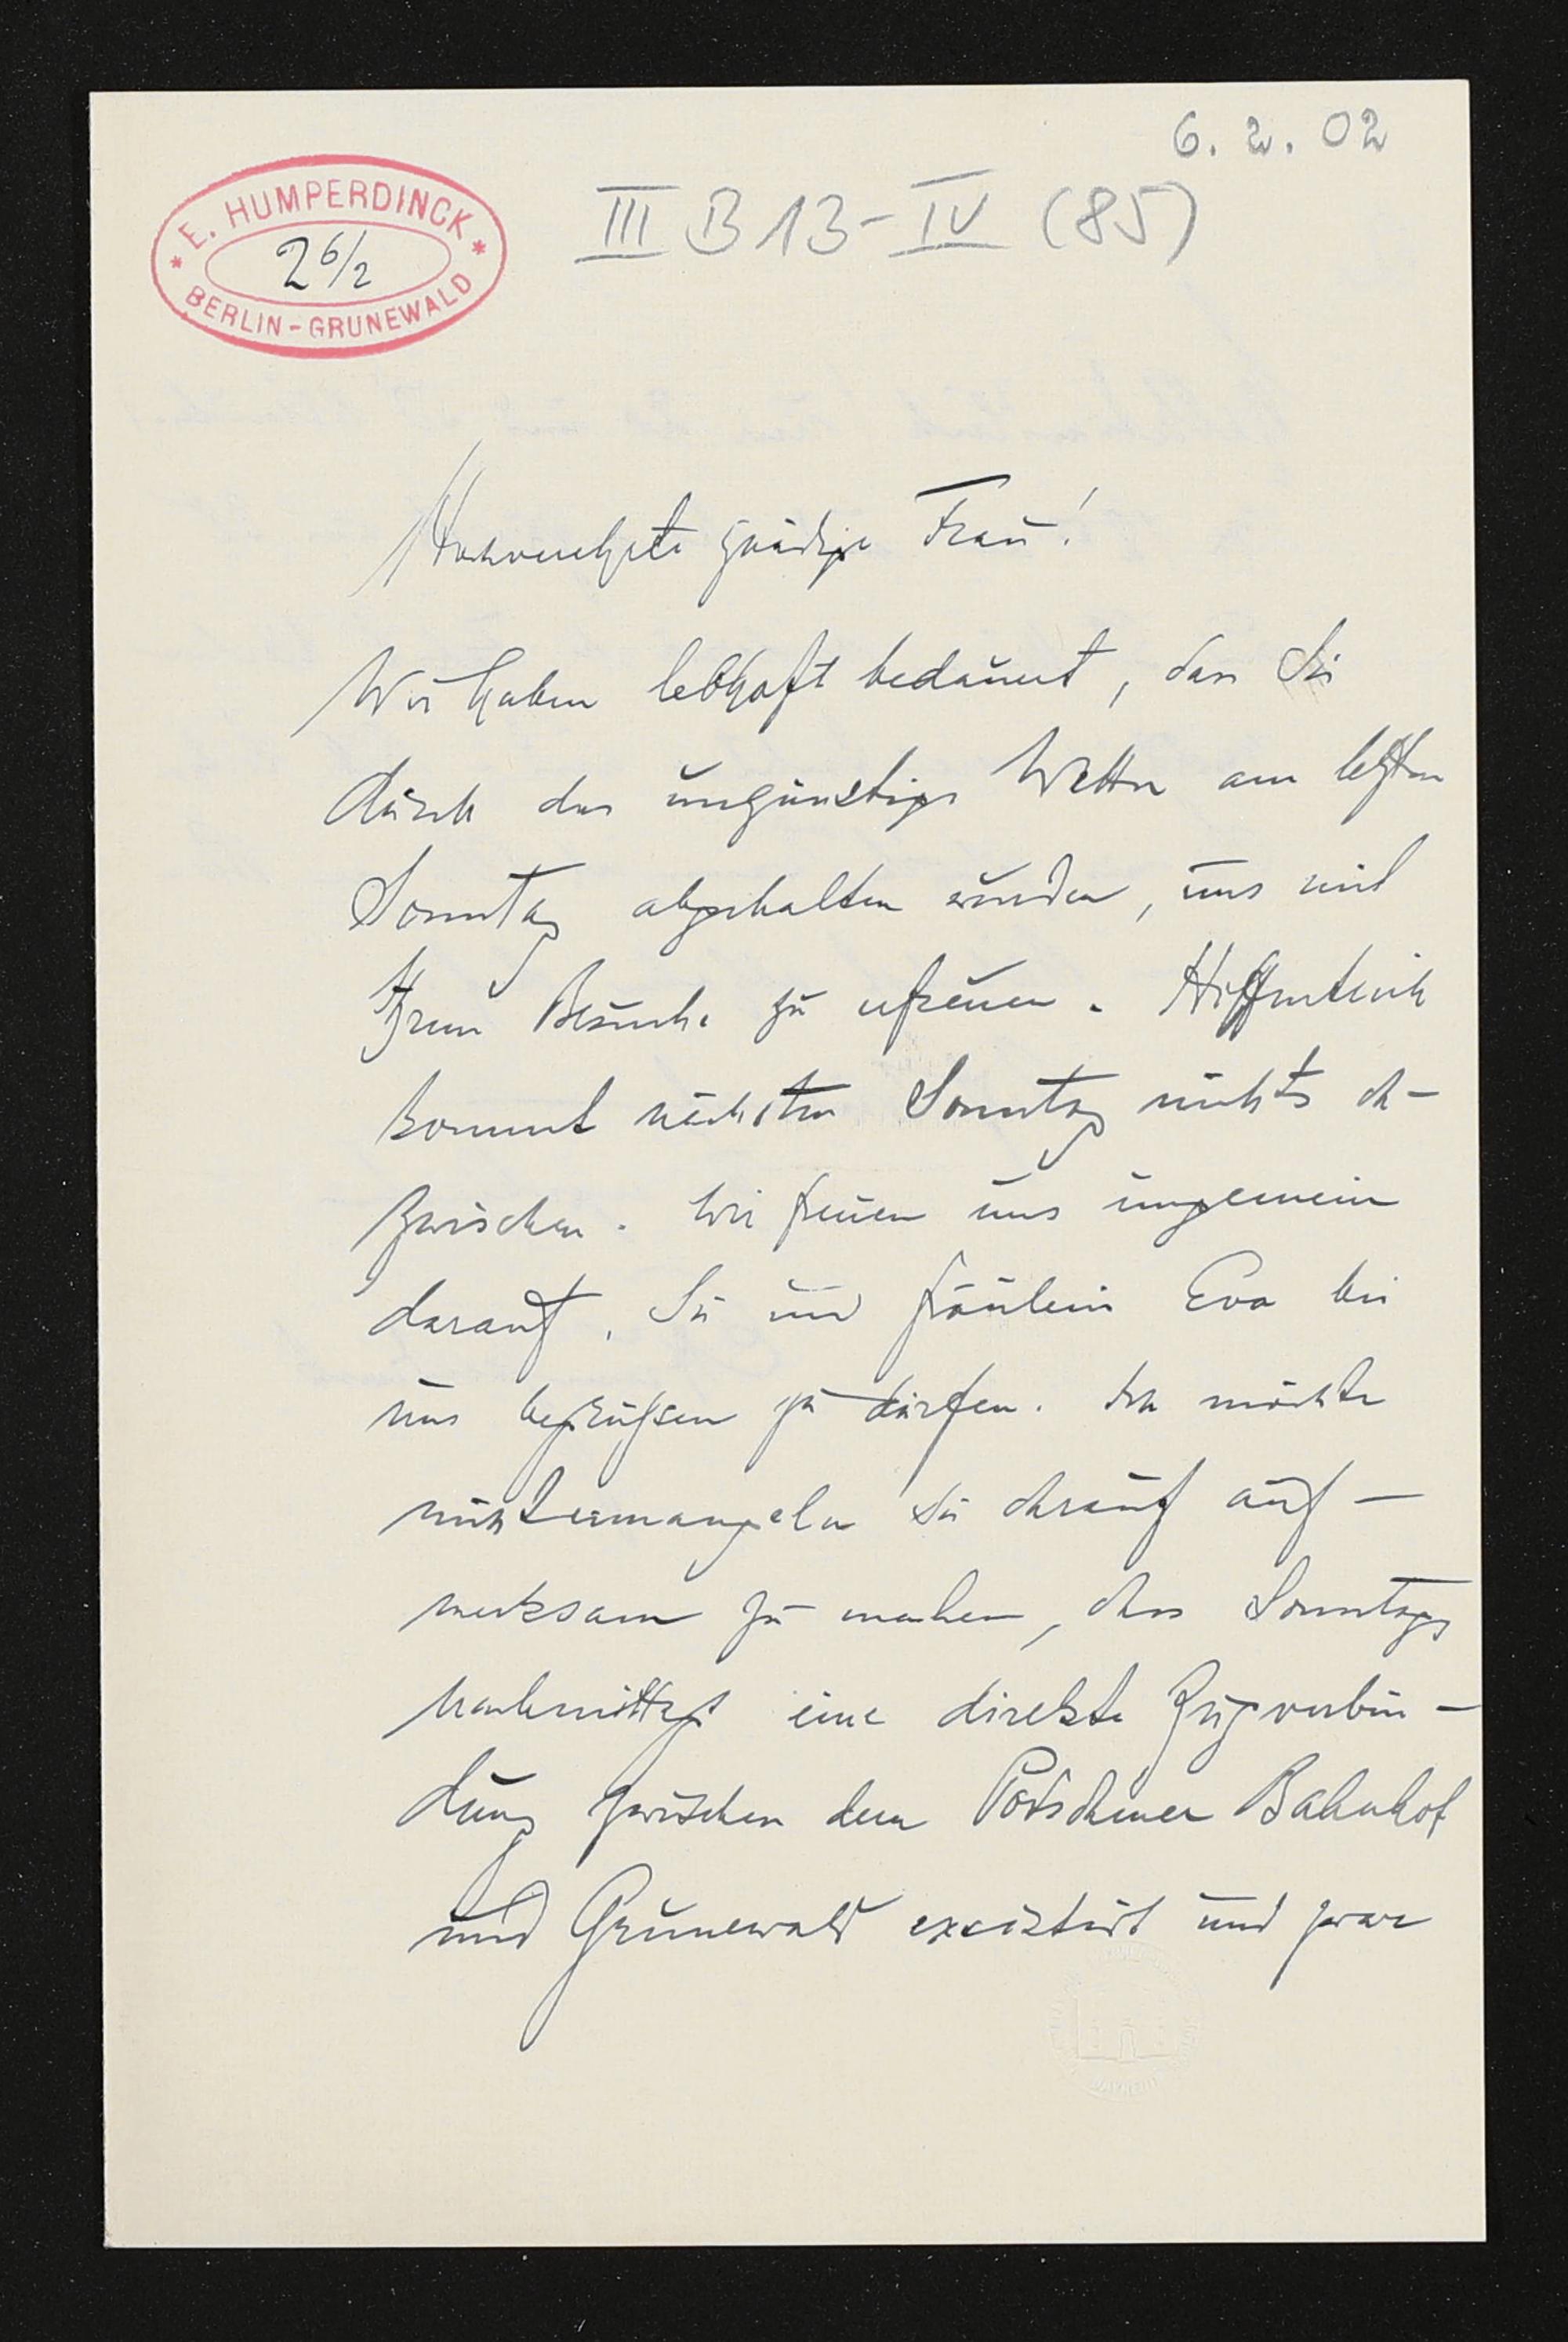 6. 2. 02
III B 13-IV (85)
* E. HUMPERDINCK *
2 6/2
BERLIN-GRUNEWALD
Hochverehrte gnädige Frau!
Wir haben lebhaft bedauert, dass Sie
durch das ungünstige Wetter am letzten
Sonntag abgehalten wurden, uns mit
Ihrem Besuche zu erfreuen. Hoffentlich
kommt nächsten Sonntag nichts da-
zwischen. Wir freuen uns ungemein
darauf, Sie und Fräulein Eva bei
uns begrüßen zu dürfen. Ich möchte
nicht ermangeln Sie darauf auf-
merksam zu machen, dass Sonntags
Nachmittags eine direkte Zugverbin-
dung zwischen dem Potsdamer Bahnhof
und Grunewald existirt und zwar